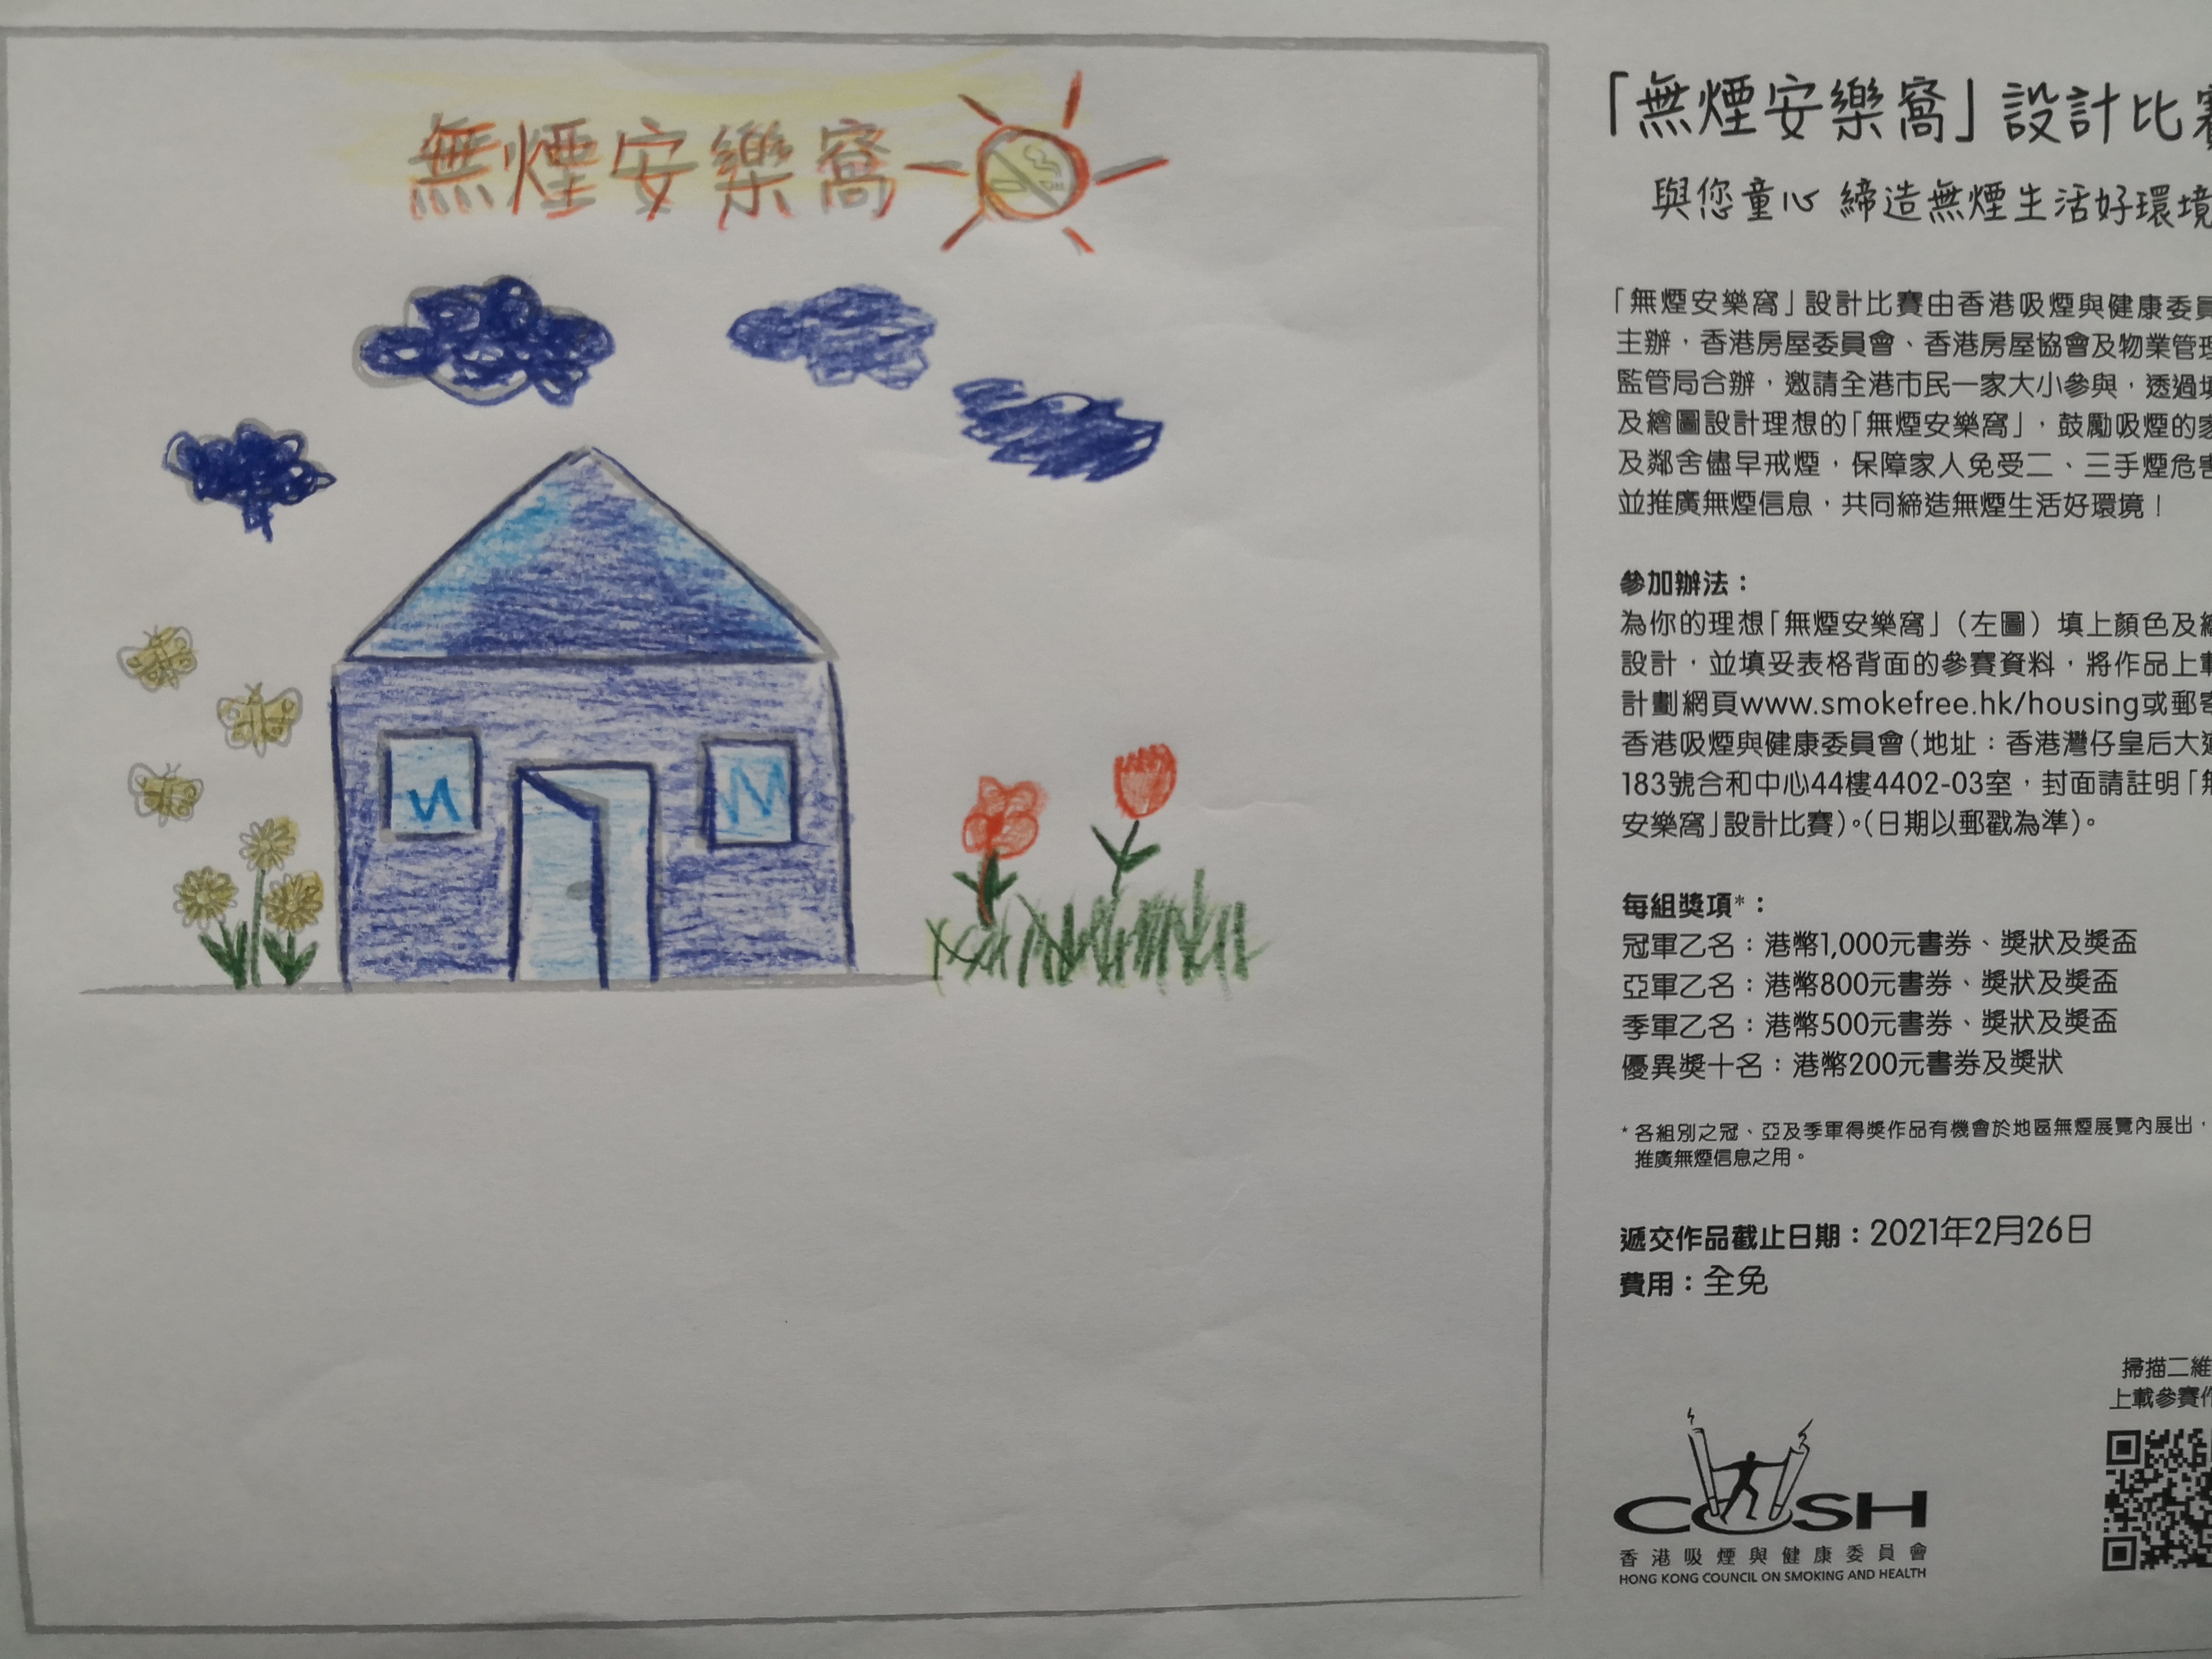 無煙安樂窩
「無煙安樂窩」設計比
與您童心 締造無煙生活好環境
「無煙安樂窩」設計比賽由香港吸煙與健康委員
主辦，香港房屋委員會、香港房屋協會及物業管理
監管局合辦，邀請全港市民一家大小參與，透過
及繪圖設計理想的「無煙安樂窩」，鼓勵吸煙的
及鄰舍儘早戒煙，保障家人免受二、三手煙危害
並推廣無煙信息，共同締造無煙生活好環境！
參加辦法：
為你的理想「無煙安樂窩」（左圖）填上顏色及
設計，並填妥表格背面的參賽資料，將作品上載
計劃網頁www.smokefree.hk/housing或郵寄
香港吸煙與健康委員會（地址：香港灣仔皇后大道
183號合和中心44樓4402-03室，封面請註明「無
安樂窩」設計比賽）。（日期以郵戳為準）。
每組獎項*：
冠軍乙名：港幣1,000元書券、獎狀及獎盃
亞軍乙名：港幣800元書券、獎狀及獎盃
季軍乙名：港幣500元書券、獎狀及獎盃
優異獎十名：港幣200元書券及獎狀
* 各組別之冠、亞及季軍得獎作品有機會於地區無煙展覽內展出，
推廣無煙信息之用。
遞交作品截止日期：2021年2月26日
費用：全免
掃描二維
上載參賽作
COSH
香港吸煙與健康委員會
HONG KONG COUNCIL ON SMOKING AND HEALTH